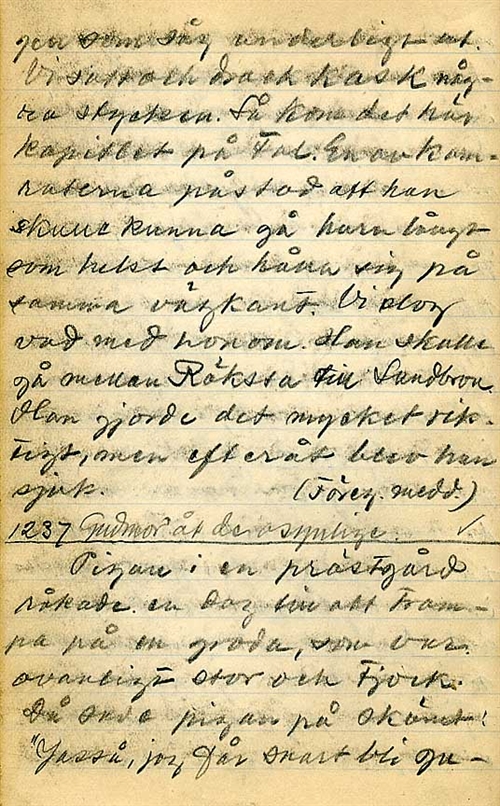 gen som såg underligt ut.
Vi satt och drack kask någ-
ra stycken. Så kom det här
kapitlet på tal. En av kam-
raterna påstod att han
skulle kunna gå huru långt
som helst och hålla sig på
samma vägkant. Vi slog
vad med honom. Han skulle
gå mellan Röksta till Sundbron.
Han gjorde det mycket rik-
tigt, men efteråt blev han
sjuk. (Föreg. medd.)
1237 Gudmor åt de osynliga. ✓
Pigan i en prästgård
råkade en dag till att tram-
pa på en groda, som var
ovanligt stor och tjock.
Då sade pigan på skämt:
"Jasså, jag får snart bli gu-